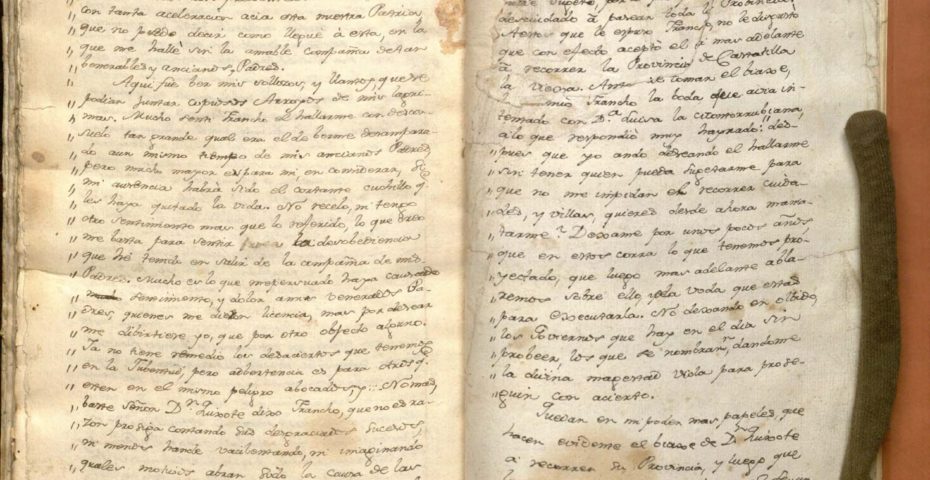 con tanta aceleracion acia esta nuestra Patria
" que no puedo decir como llegué á esta, en la
" que me hallè sin la amable compañia de tan
" benerables y ancianos, Padres.
" Aqui fue ber mis sollozos, y llantos, que se
" podian juntar copiosos Arroyos de mis lagri-
" mas. Mucho senti Francho el hallarme con descon-
" suelo tan grande qual era el de berme desampara-
" do aun mismo tiempo de mis ancianos Padres
" pero mucho mayor es para mi en considerar, si
" mi ausencia habrà sido el cortante cuchillo q.
" les haya quitado la vida. No recelo, ni tengo
" otro sentimiento mas que lo referido, lo que creo
" me basta para sentir la desobediencia
" que hè tenido en salir de la compañia de mis
" Padres. Mucho es lo que me persuado haya causado
" sentimiento, y dolor amis venerados Pa-
" dres, quienes me dieron licencia, mas por desear
" me dibirtiese yo, que por otro objecto alguno.
" Ya no tiene remedio los desaciertos que tenemos
" en la Juventud, pero advertencia es para otros q.e
" esten en el mismo peligro abocados, y ::: No mas,
" baste Señor D.n Quixote dixo Francho, que no es ra-
" zon prosiga contando sus desgraciados sucesos,
" ni menos
" quales motivos abran sido la causa de las
descuidado à pasear toda la Provincia.
que con efecto acepto el ir mas adelante
à recorrer la Provincia de Castilla
la Vieja. Antes de tomar el biaxe,
Francho la boda que avia in-
" tentado con D.a Luisa la
" a lo que respondiò muy hayrado: des-
" pues que yo ando deseando el hallarme
" sin tener quien pueda sugetarme para
" que no me impidan el recorrer ciuda-
" des, y villas, quieres desde ahora mania-
" tarme? Dexame por unos pocos años
" que en estos corra lo que tenemos pro-
" yectado, que luego mas adelante abla-
" remos sobre ello, y la voda que estad
" para executarla. No dexando en olbido,
" los Goviernos que hay en el dia sin
" probeer, los que se nombran, dandome
" la divina magestad vida para prose-
" guir con acierto.
Quedan en mi poder mas papeles, que
hacen evidente el biaxe de D.n Quixote
à recorrer su Provincia, y luego que